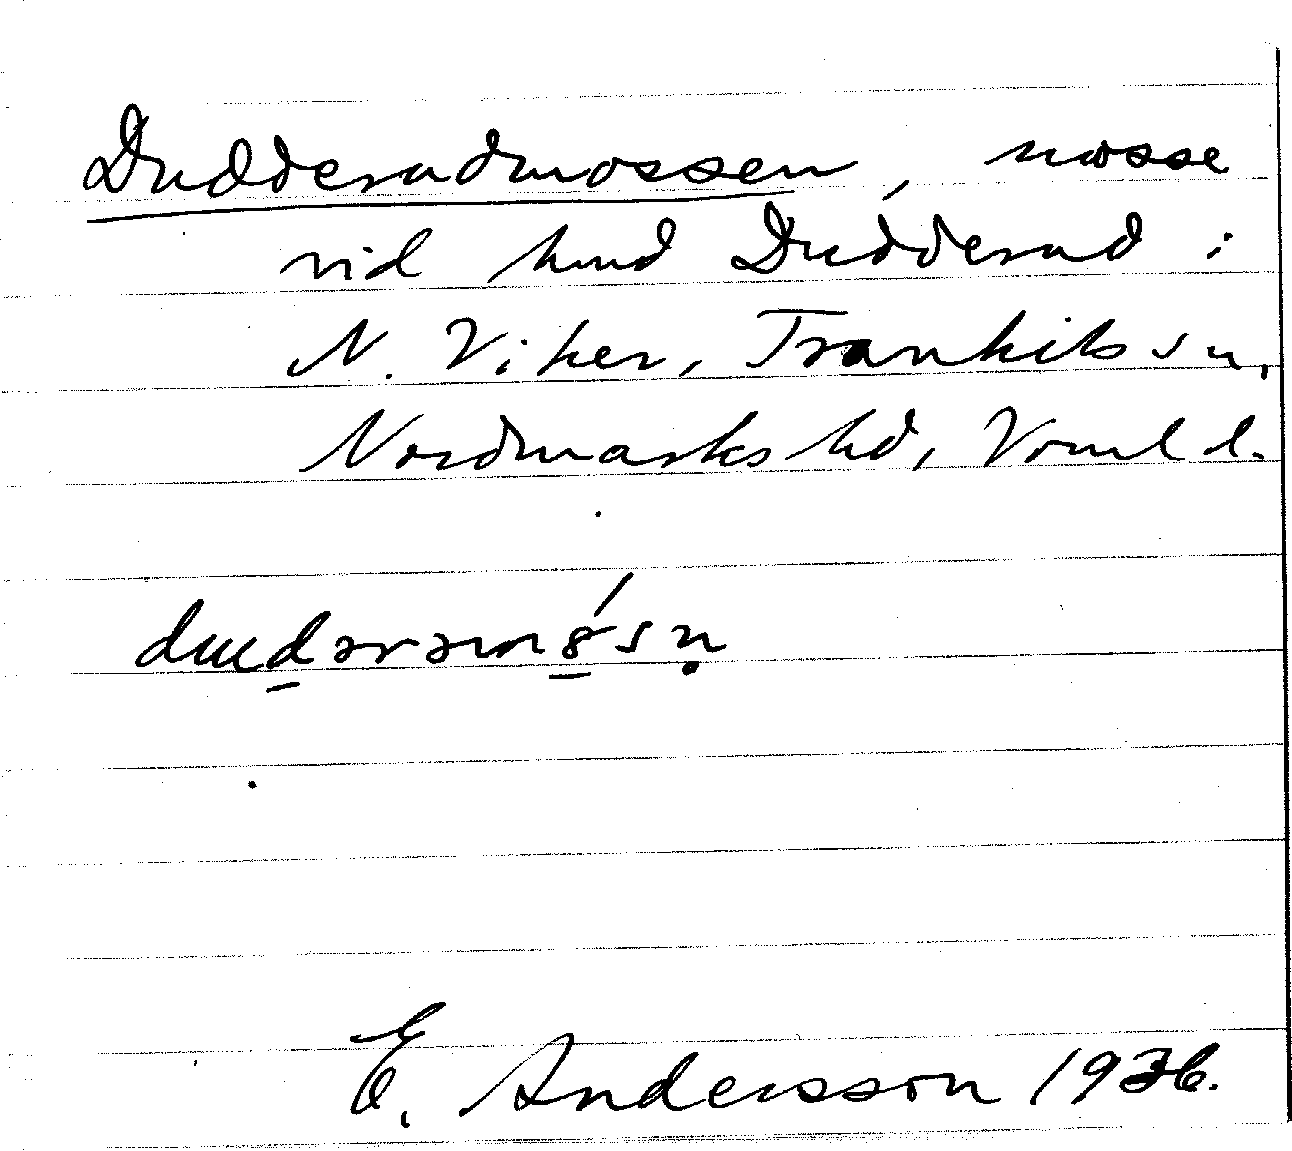 Dudderudmossen, mosse
vid hmd Dudderud i
N. Viker, Trankils sn,
Nordmarks hd, Värml l.
E. Andersson 1936.